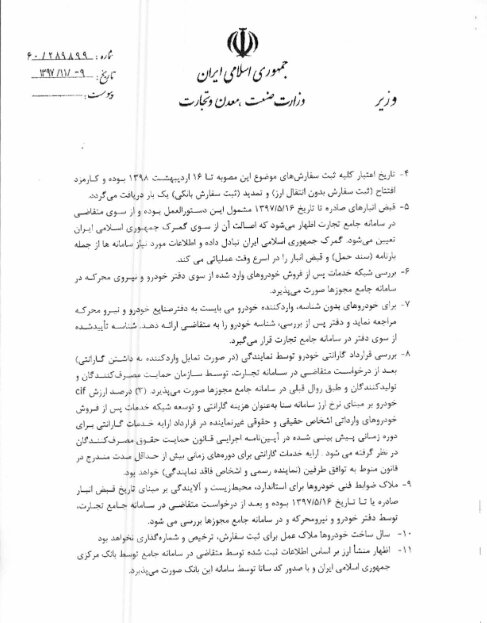 شماره: ۶۰/۲۸۹۸۹۹
تاریخ: ۱۳۹۷/۱۱/۰۹
پیوست:
جمهوری اسلامی ایران
وزارت صنعت، معدن و تجارت
وزیر
۴- تاریخ اعتبار کلیه ثبت سفارش‌های موضوع این مصوبه تا ۱۶ اردیبهشت ۱۳۹۸ بوده و کارمزد
افتتاح (ثبت سفارش بدون انتقال ارز) و تمدید (ثبت سفارش بانکی) یک بار دریافت می‌گردد.
۵- قبض انبارهای صادره تا تاریخ ۱۳۹۷/۵/۱۶ مشمول این دستورالعمل بوده و از سوی متقاضی
در سامانه جامع تجارت اظهار می‌شود که اصالت آن از سوی گمرک جمهوری اسلامی ایران
تعیین می‌شود. گمرک جمهوری اسلامی ایران تبادل داده و اطلاعات مورد نیاز سامانه ها از جمله
بارنامه (سند حمل) و قبض انبار را در اسرع وقت عملیاتی می کند.
۶- بررسی شبکه خدمات پس از فروش خودروهای وارد شده از سوی دفتر خودرو و نیروی محرکه در
سامانه جامع مجوزها صورت می‌پذیرد.
۷- برای خودروهای بدون شناسه، واردکننده خودرو می بایست به دفترصنایع خودرو و نیرو محرکه
مراجعه نماید و دفتر پس از بررسی، شناسه خودرو را به متقاضی ارائه دهد. شناسه تأییدشده
از سوی دفتر در سامانه جامع تجارت قرار می‌گیرد.
۸- بررسی قرارداد گارانتی خودرو توسط نمایندگی (در صورت تمایل واردکننده به داشتن گارانتی)
بعد از درخواست متقاضی در سامانه تجارت، توسط سازمان حمایت مصرف‌کنندگان و
تولیدکنندگان و طبق روال قبلی در سامانه جامع مجوزها صورت می‌پذیرد. (۲) درصد ارزش cif
خودرو بر مبنای نرخ ارز سامانه سنا به‌عنوان هزینه گارانتی و توسعه شبکه خدمات پس از فروش
خودروهای وارداتی اشخاص حقیقی و حقوقی غیرنماینده در قرارداد ارایه خدمات گارانتی برای
دوره زمانی پیش بینی شده در آیین‌نامه اجرایی قانون حمایت حقوق مصرف‌کنندگان
در نظر گرفته می شود. ارایه خدمات گارانتی برای دوره‌های زمانی بیش از حداقل مدت مندرج در
قانون منوط به توافق طرفین (نماینده رسمی و اشخاص فاقد نمایندگی) خواهد بود.
۹- ملاک ضوابط فنی خودروها برای استاندارد، محیط‌زیست و آلایندگی بر مبنای تاریخ قبض انبار
صادره یا تا تاریخ ۱۳۹۷/۵/۱۶ بوده و بعد از درخواست متقاضی در سامانه جامع تجارت،
توسط دفتر خودرو و نیرومحرکه و در سامانه جامع مجوزها بررسی می شود.
۱۰- سال ساخت خودروها ملاک عمل برای ثبت سفارش، ترخیص و شماره‌گذاری نخواهد بود
۱۱- اظهار منشأ ارز بر اساس اطلاعات ثبت شده توسط متقاضی در سامانه جامع توسط بانک مرکزی
جمهوری اسلامی ایران و با صدور کد ساتا توسط سامانه این بانک صورت می‌پذیرد.